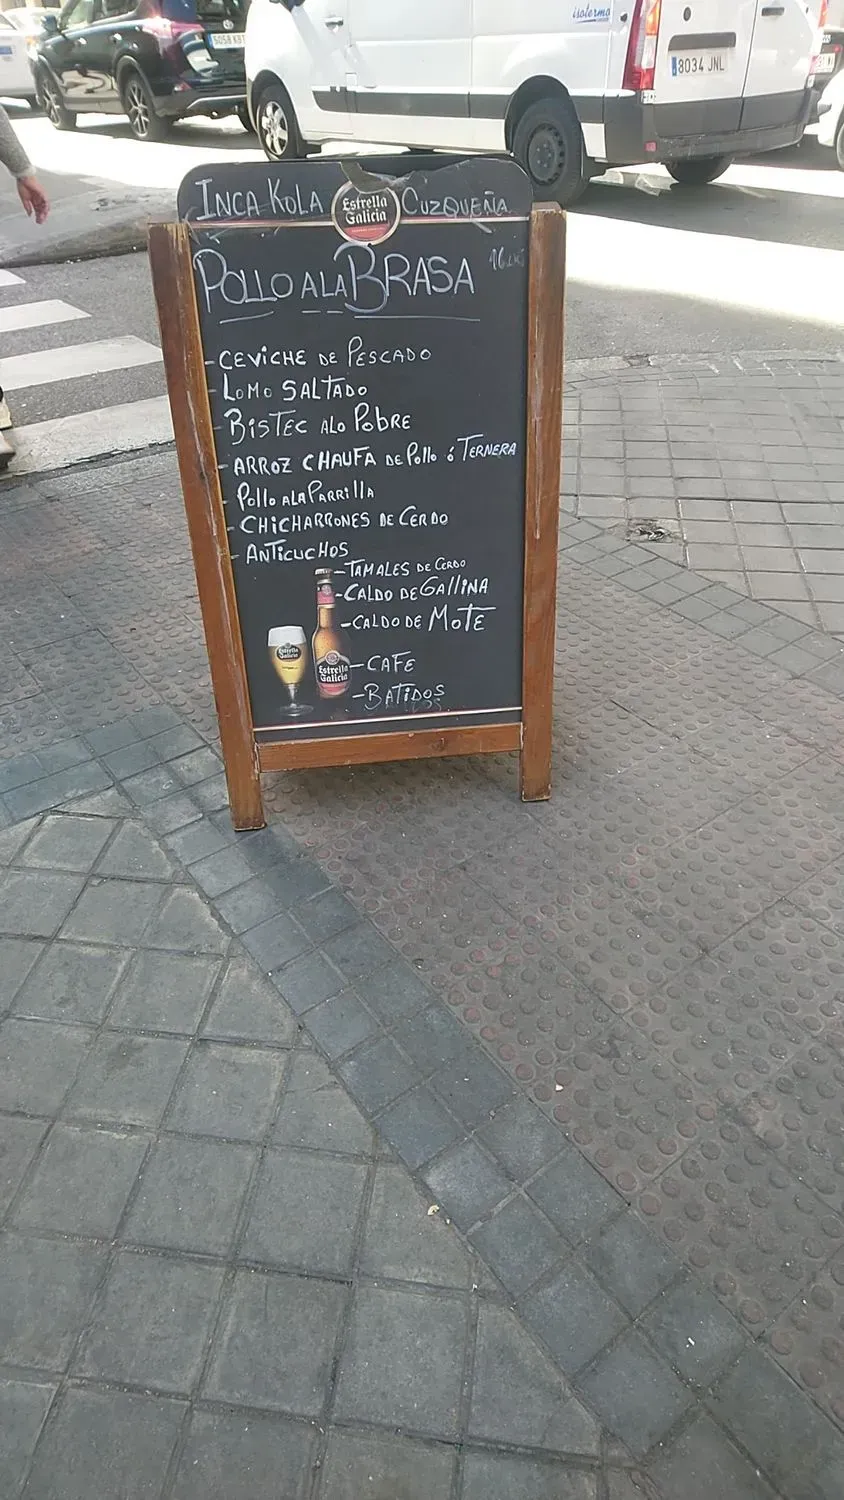 isotermo
5058
8034 JNL
INCA KOLA
Estrella
Galicia
CUZQUEÑA
POLLO A LA BRASA
- CEVICHE DE PESCADO
- LOMO SALTADO
- BISTEC ALO POBRE
- ARROZ CHAUFA DE POLLO ó TERNERA
- POLLO A LA PARRILLA
- CHICHARRONES DE CERDO
- ANTICUCHOS
- TAMALES DE CERDO
- CALDO DE GALLINA
- CALDO DE MOTE
- CAFE
- BATIDOS
Estrella
Galicia
Estrella
Galicia